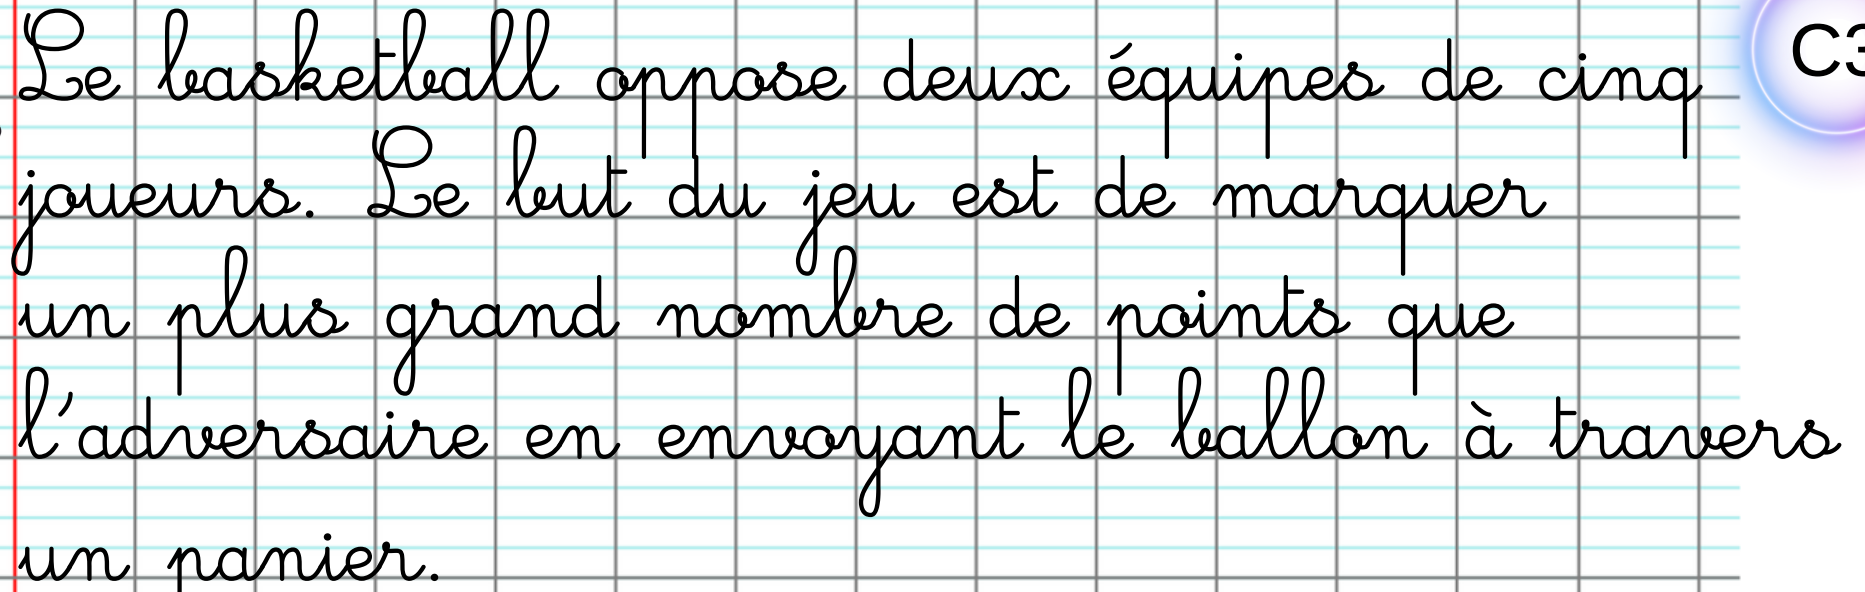 Le basketball oppose deux équipes de cinq
joueurs. Le but du jeu est de marquer
un plus grand nombre de points que
l'adversaire en envoyant le ballon à travers
un panier.
C3